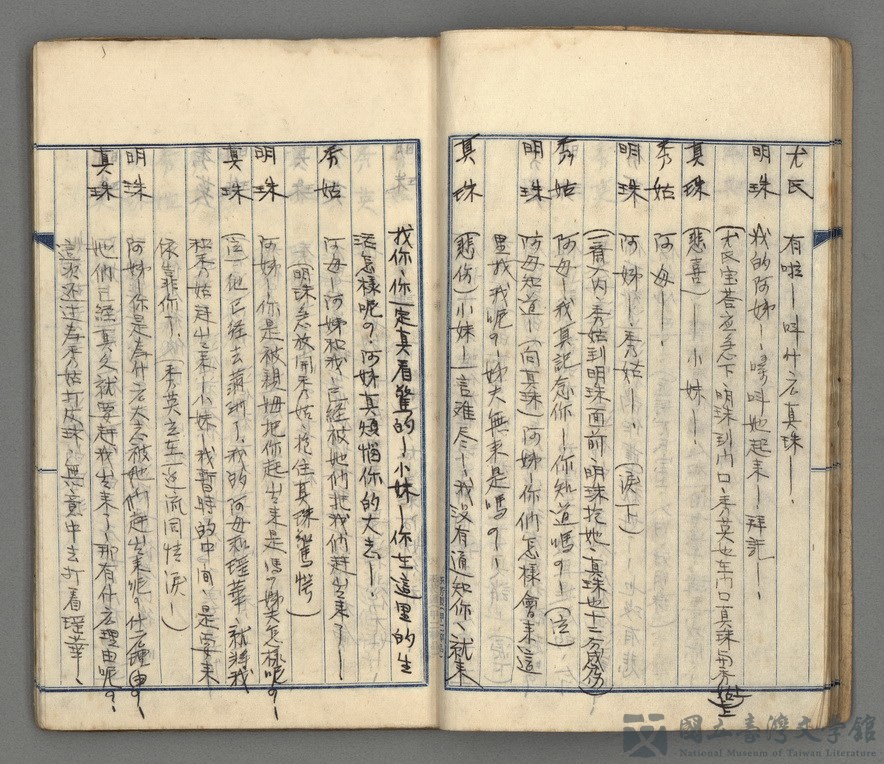 尤氏　有啦—叫什麼真珠—、
明珠　我的阿姊—、嗲叫她起来—拜託—、
(尤氏宝蓉应念下、明珠到門口、秀英也在門口真珠與秀姑上)
真珠　(悲喜)—小妹—、
秀姑　阿母—、
明珠　阿姊—、秀姑—、(淚下)
(齊入内、秀姑到明珠面前、明珠抱她、真珠也十二分感伤)
秀姑　阿母—我真記念你—你知道嗎？—(泣)
明珠　阿母知道—(向真珠)阿姊—你們怎樣會来這
里找我呢？—姊夫無来是嗎？—、
真珠　(悲伤)小妹—一言难尽—我沒有通知你、就来
找你、你一定真着驚的—小妹—你在這里的生
活怎樣呢？、阿姊真煩惱你的大志—、
秀姑　阿母—阿姊和我、已經被她們把我們赶出来了—
(明珠忽放開秀姑、抱住真珠驚愕)
明珠　阿姊—你是被親姆把你赶出来是嗎？姊夫怎樣呢？—
真珠　(泣)他已經去蘇州了、我的阿母和瑶華、就将我
和秀姑赶出来—小妹—我暫時的中間、是要来
依靠你了、(秀英立在一边流同情淚—)
明珠　阿姊—你是為什麼大志被她們赶出来呢？什麼理由？—
真珠　她們已經真久就要赶我出来—、那有什麼理由呢？、
這次不过為秀姑打皮球、無意中去打着瑶華、